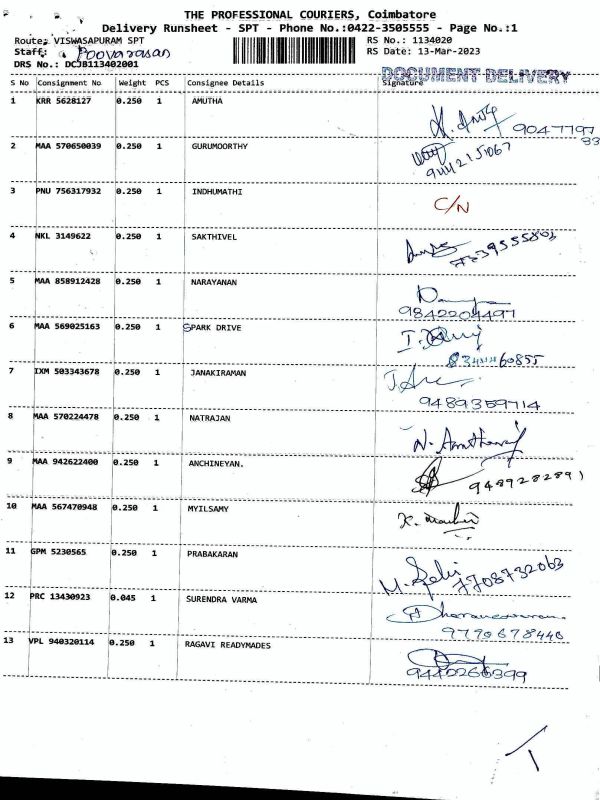 THE PROFESSIONAL COURIERS, Coimbatore
Delivery Runsheet - SPT - Phone No.:0422-3505555 - Page No.:1
Route: VISWASAPURAM SPT RS No.: 1134020
Staff: Poovarasan RS Date: 13-Mar-2023
DRS No.: DCJB113402001
DOCUMENT DELIVERY
S No Consignment No Weight PCS Consignee Details Signature
1 KRR 5628127 0.250 1 AMUTHA
2 MAA 570650039 0.250 1 GURUMOORTHY
9442151067
3 PNU 756317932 0.250 1 INDHUMATHI C/N
4 NKL 3149622 0.250 1 SAKTHIVEL
5 MAA 858912428 0.250 1 NARAYANAN
9842204497
6 MAA 569025163 0.250 1 SPARK DRIVE
7 IXM 503343678 0.250 1 JANAKIRAMAN
9489359714
8 MAA 570224478 0.250 1 NATRAJAN
9 MAA 942622400 0.250 1 ANCHINEYAN.
9489282891
10 MAA 567470948 0.250 1 MYILSAMY
11 GPM 5230565 0.250 1 PRABAKARAN
7708732063
12 PRC 13430923 0.045 1 SURENDRA VARMA
9770678440
13 VPL 940320114 0.250 1 RAGAVI READYMADES
9440266399